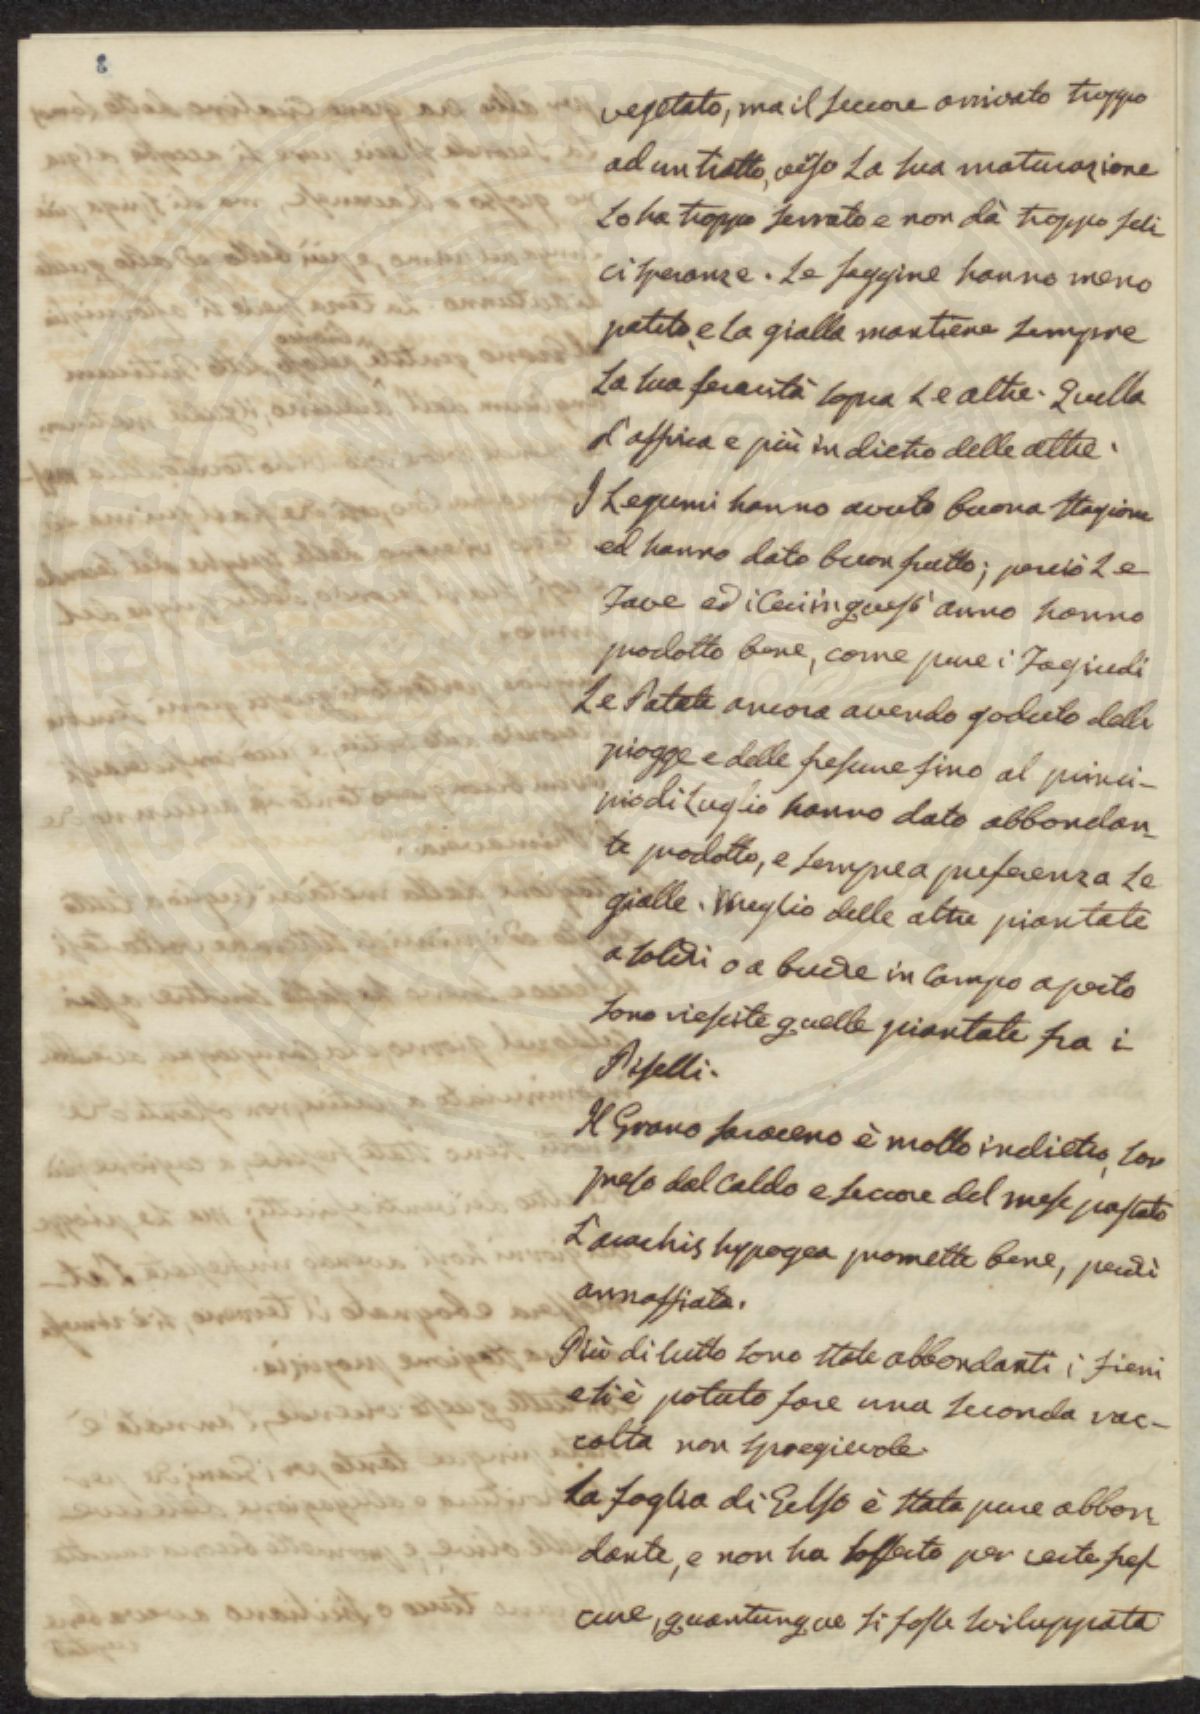 8
vegetato, ma il seccore arrivato troppo
ad un tratto, verso la sua maturazione
lo ha troppo serrato e non dà troppo feli
ci speranze. Le saggine hanno meno
patito, e la gialla mantiene sempre
la sua feracità sopra le altre. Quella
d'affrica e più indietro delle altre.
I Legumi hanno avuto buona stagione
ed hanno dato buon frutto; perciò le
Fave ed i Ceci in quest'anno hanno
prodotto bene, come pure i Fagiuoli
Le Patate ancora avendo goduto delle
piogge e delle frescure fino al princi-
pio di Luglio hanno dato abbondan-
te prodotto, e sempre a preferenza le
gialle. Meglio delle altre piantate
a solchi o a buche in Campo aperto
sono riescite quelle piantate fra i
Piselli.
Il Grano saraceno è molto indietro, sor
preso dal Caldo e seccore del mese passato
L'arachis hypogea promette bene, perchè
annaffiata.
Più di tutto sono state abbondanti i fieni
e si è potuto fare una seconda rac-
colta non spregievole.
La foglia di Gelso è stata pure abbon-
dante, e non ha sofferto per certe fres
cure, quantunque si fosse sviluppata